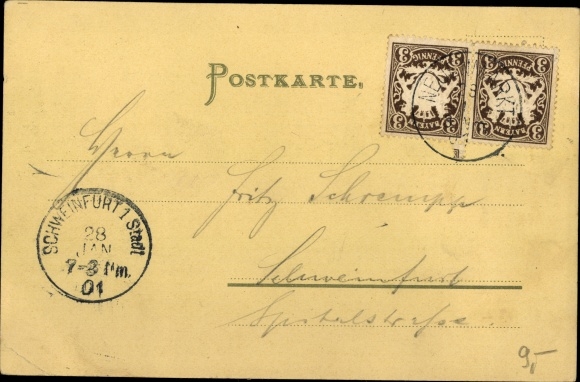 POSTKARTE.
3 PFENNIG BAYERN 3
3 PFENNIG BAYERN 3
Herrn
Fritz Schrempp
Schweinfurt
Spitalstrasse.
SCHWEINFURT 1 Stadt
28
JAN
7-8 Nm.
01
9,-